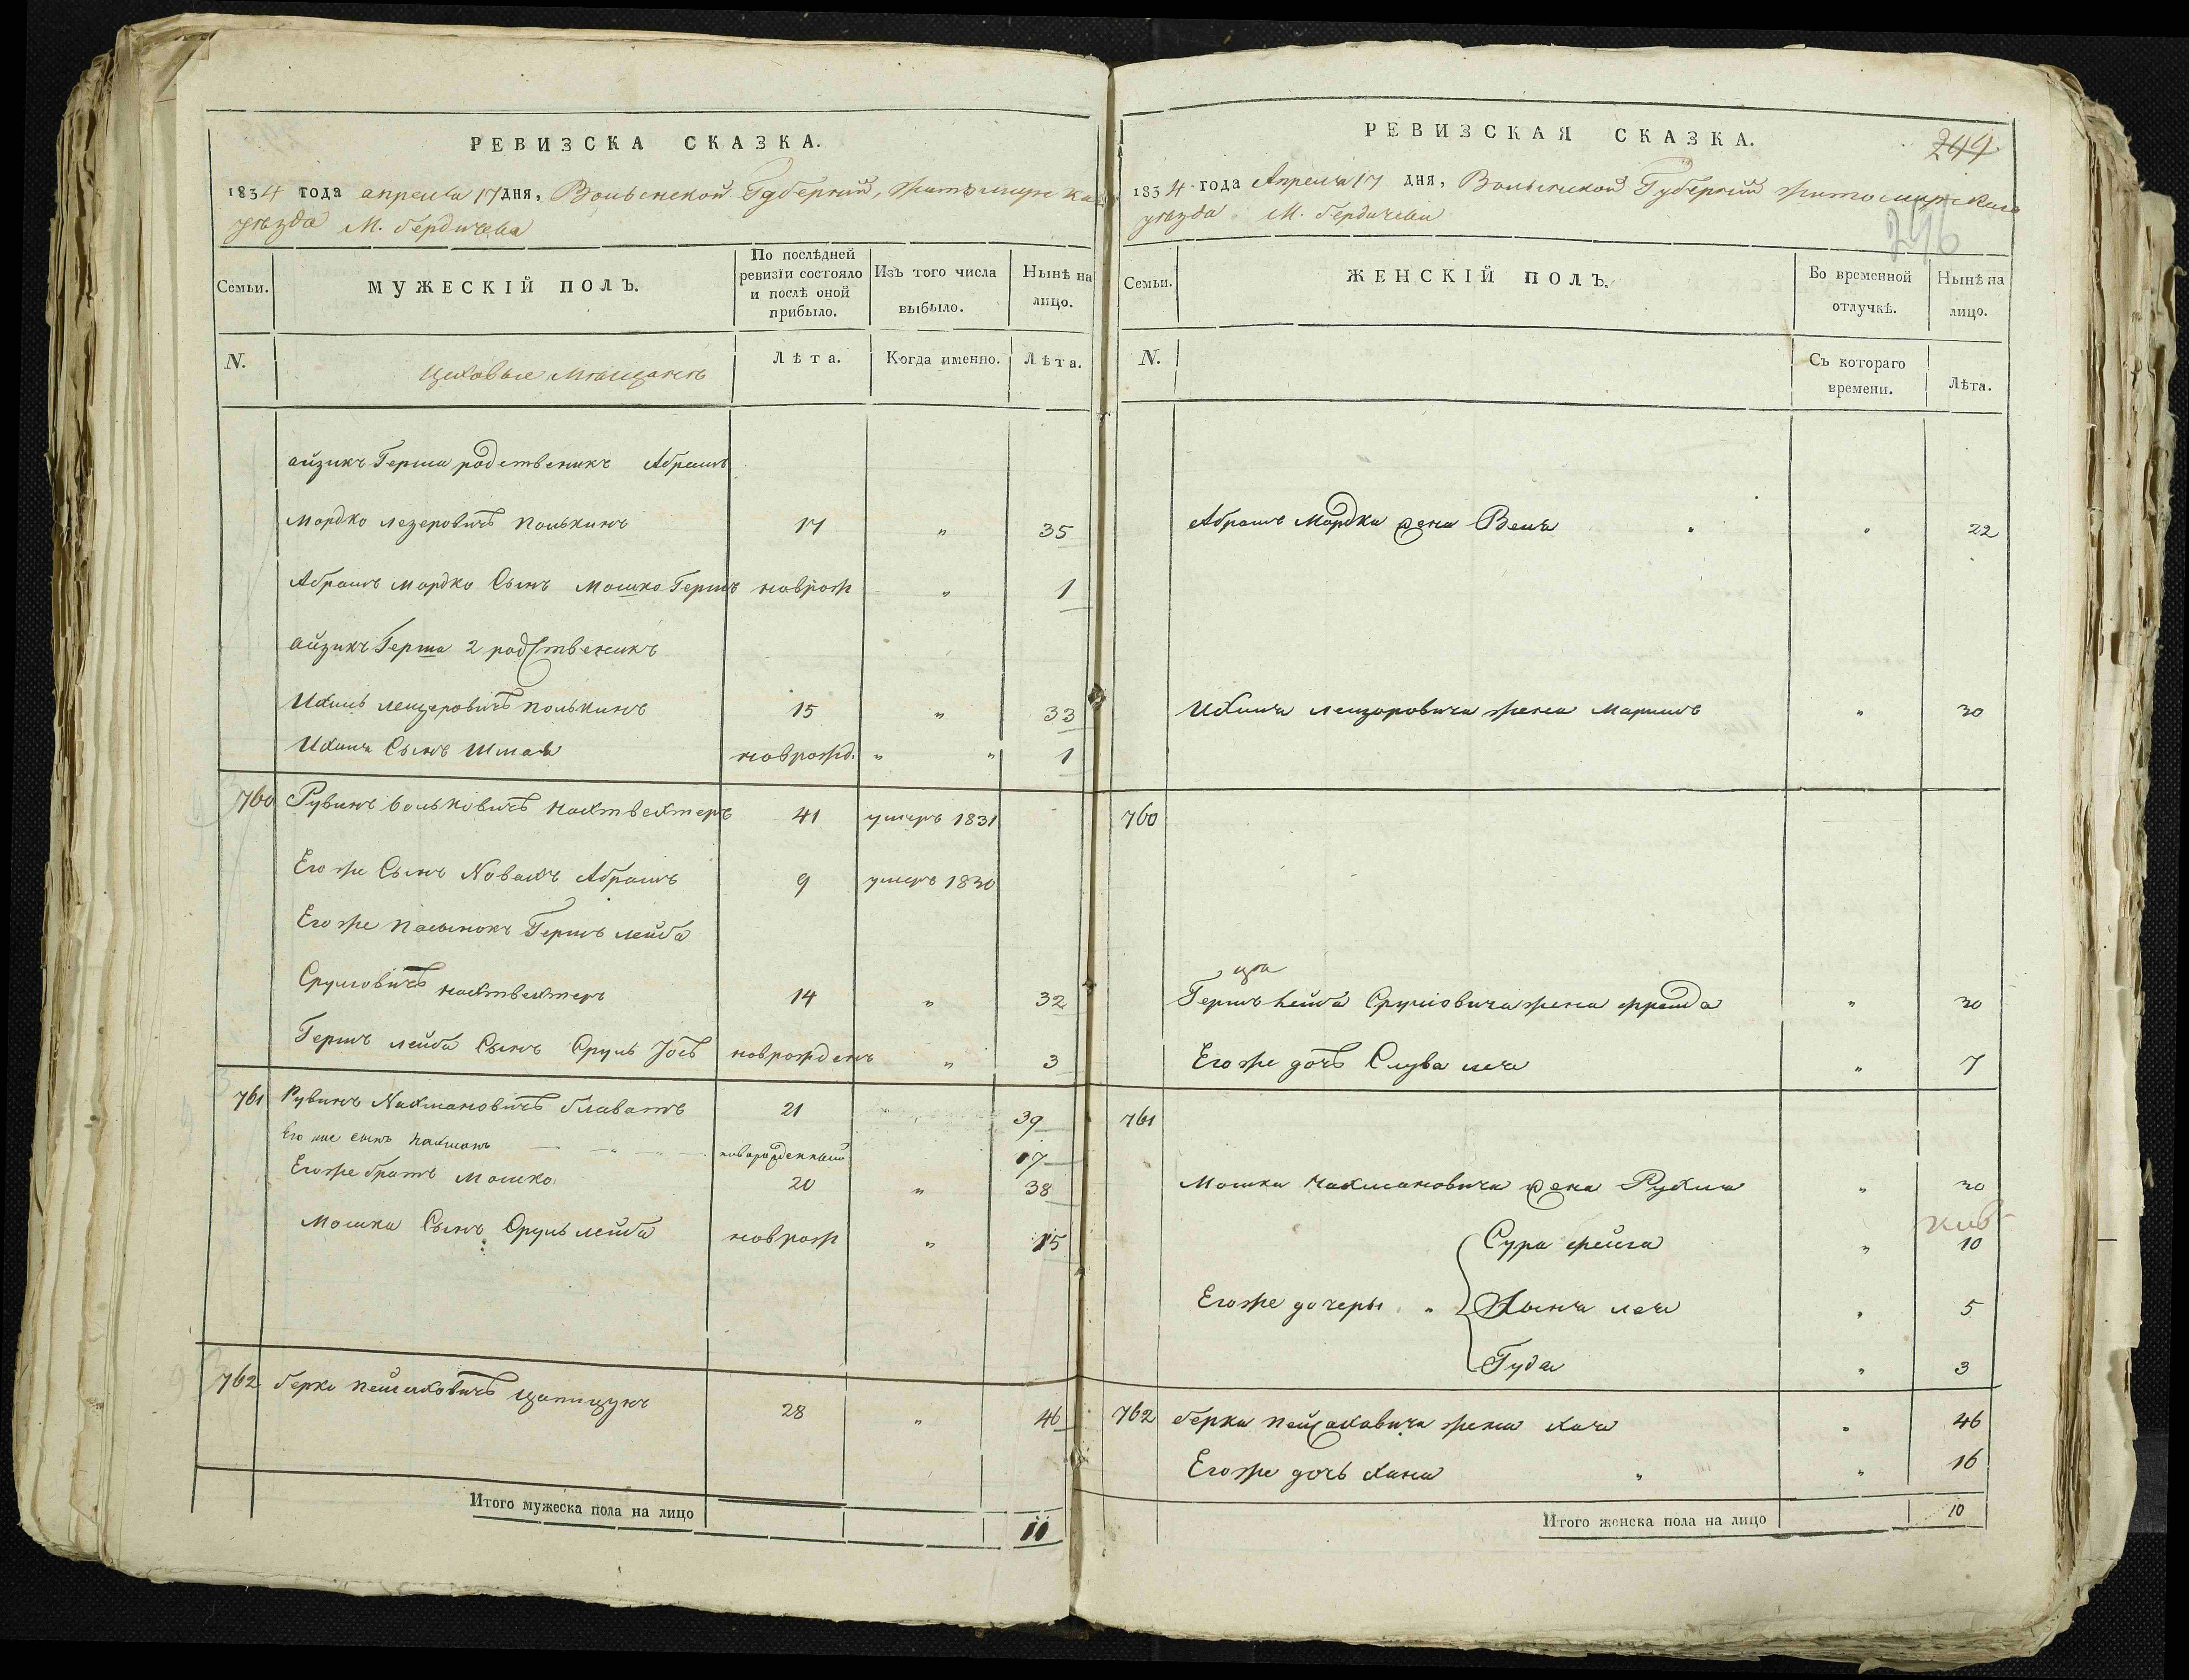 РЕВИЗСКА СКАЗКА.
1834 года апреля 17 дня, Волынской Губернии, Житомирска
уезда М. Бердичева
Семьи.
МУЖЕСКІЙ ПОЛЪ.
По послѣдней ревизіи состояло и послѣ оной прибыло.
Изъ того числа выбыло.
Нынѣ на лицо.
N.
Цеховые Мѣщане
Лѣта.
Когда именно.
Лѣта.
Айзикъ Герша родственикъ Абрамъ
Мордко Лезеровичъ Полькинъ 17 " 35
Абрамъ Мордко Сынъ Мошко Гершъ наврож " 1
Айзикъ Герша 2 родственикъ
Ихиль Лейзеровичъ Полькинъ 15 " 33
Ихиля Сынъ Шмая новрожд. " " 1
760 Рувинъ Вольковичъ Нахтвехтеръ 41 умеръ 1831
Его же Сынъ Новахъ Абрамъ 9 умеръ 1830
Его же Пасынокъ Гершъ Лейба
Сруловичъ Нахтвехтеръ 14 " 32
Гершъ Лейба Сынъ Сруль Іосъ новрожденъ " 3
761 Рувинъ Нахмановичъ Главатъ 21 39
Его же сынъ Нахманъ новорожденный 17
Его же братъ Мошко 20 " 38
Мошка Сынъ Сруль Лейба новрож " 15
762 Берко Пейсаховичъ 28 " 46
Итого мужеска пола на лицо 11
РЕВИЗСКАЯ СКАЗКА.
244
246
1834 года Апреля 17 дня, Волынской Губернии Житомирскаго
уезда М. Бердичева
Семьи.
ЖЕНСКІЙ ПОЛЪ.
Во временной отлучкѣ.
Нынѣ на лицо.
N.
Съ котораго времени.
Лѣта.
Абрамъ Мордки жена Веля " " 22
Ихиля Лейзоровича жена Маримъ " 30
760
Гершъ Лейба Сруловича жена Фрейда " 30
Его же дочь Слува Лея " 7
761
Мошки Нахмановича жена Рухля " 30
Сура Фейга " 10
Его же дочеры " Хына Лея " 5
Гуда " 3
762 Берки Пейсаховича жена Хая " 46
Его же дочь Хана " " 16
Итого женска пола на лицо 10